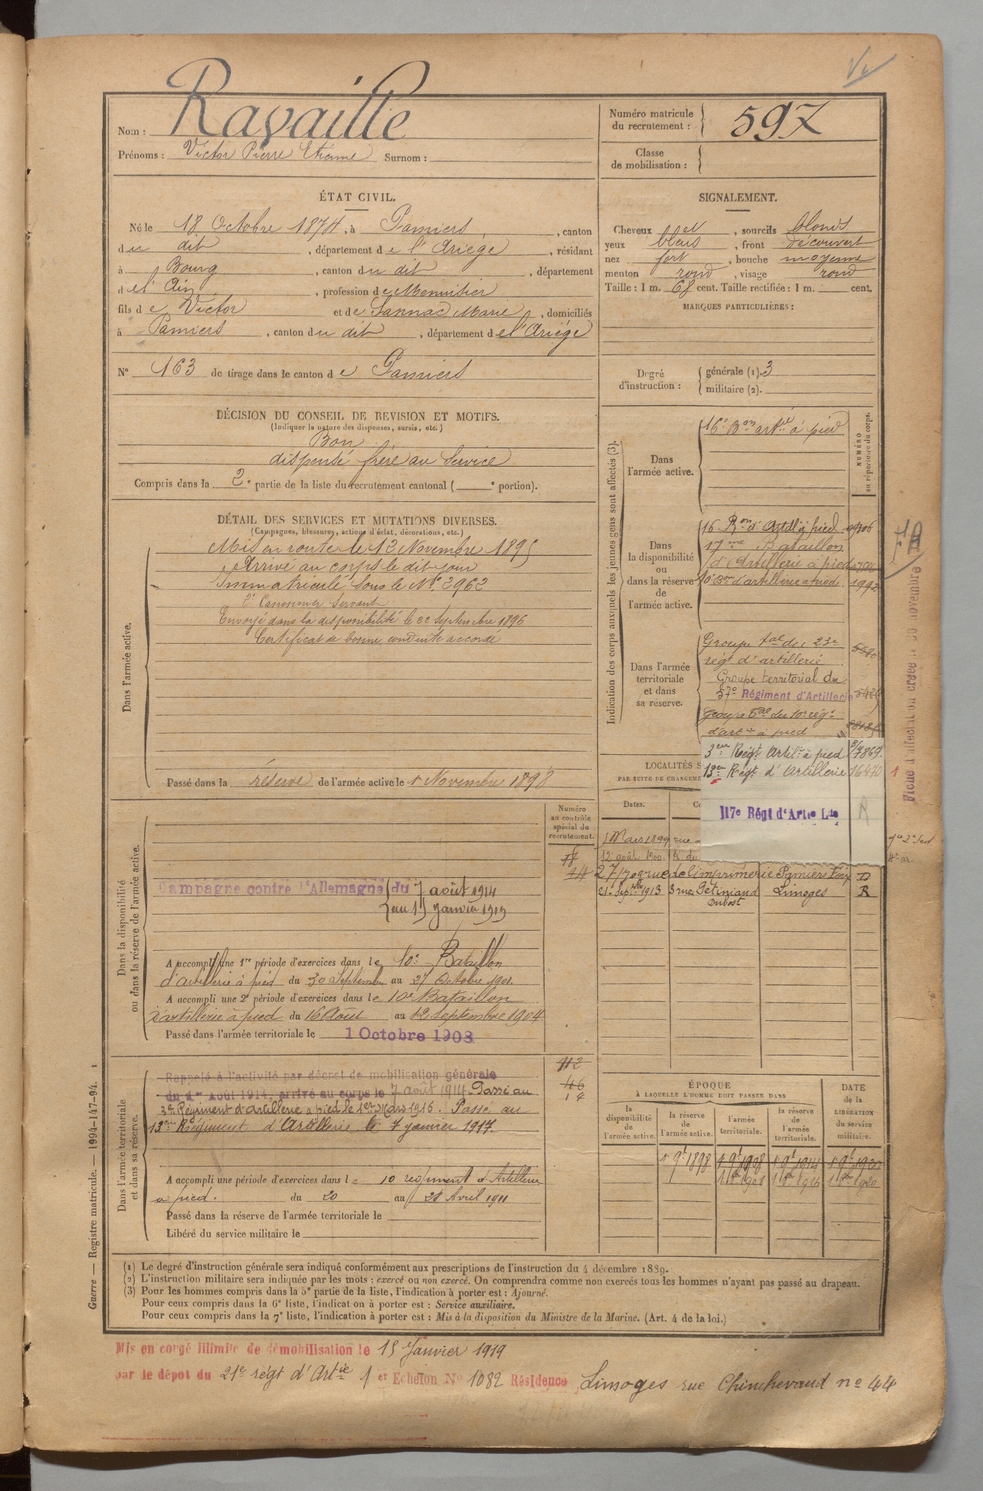 Nom : Ravaille
Prénoms : Victor Pierre Etienne Surnom :
Numéro matricule
du recrutement : 597
Classe
de mobilisation :
ÉTAT CIVIL.
Né le 18 Octobre 1874, à Pamiers, canton
du dit, département de l'Ariège, résidant
à Bourg, canton du dit, département
de l'Ain, profession de Menuisier
fils de Victor et de Sannac Marie, domiciliés
à Pamiers, canton du dit, département de l'Ariége
N° 163 de tirage dans le canton de Pamiers
SIGNALEMENT.
Cheveux et, sourcils blonds
yeux bleus, front découvert
nez fort, bouche moyenne
menton rond, visage rond
Taille : 1 m. 68 cent. Taille rectifiée : 1 m. cent.
MARQUES PARTICULIÈRES :
Degré
d'instruction :
générale (1). 3
militaire (2).
DÉCISION DU CONSEIL DE REVISION ET MOTIFS.
(Indiquer la nature des dispenses, sursis, etc.)
Bon
dispensé frère au Service
Compris dans la 2e partie de la liste du recrutement cantonal ( e portion).
DÉTAIL DES SERVICES ET MUTATIONS DIVERSES.
(Campagnes, blessures, actions d'éclat, décorations, etc.)
Dans l'armée active.
Mis en route le 13 Novembre 1895
Arrivé au corps le dit jour
Immatriculé sous le N° 2962
2e Canonnier Servant
Envoyé dans la disponibilité le 22 Septembre 1896
Certificat de bonne conduite accordé
Passé dans la réserve de l'armée active le 1 Novembre 1898
Indication des corps auxquels les jeunes gens sont affectés (3).
NUMÉRO
au répertoire du corps.
Dans
l'armée active.
16e Bon artie à pied
Dans
la disponibilité
ou
dans la réserve
de
l'armée active.
16 Bon d'Artillie à pied
17me Bataillon
d'Artillerie à pied
10e Bon d'artillerie à pied 1992
Dans l'armée
territoriale
et dans
sa réserve.
Groupe tal du 23e
régt d'artillerie
Groupe territorial du
37e Régiment d'Artillerie
Groupe tal du 10e régt
d'artie à pied
3eme Régt Artie à pied 7869
13e Régt d'Artillerie 16470
117e Régt d'Artie Lde
LOCALITÉS S
PAR SUITE DE CHANGEME
Dates.
1 Mars 1899 rue
12 août 1900
27 rue de l'imprimerie Pamiers Foix D
21 Septbre 1913 3 rue Pétiniaud Limoges R
Dubost
Numéro
au contrôle
spécial du
recrutement.
Dans la disponibilité
ou dans la réserve de l'armée active.
Campagne contre l'Allemagne du 7 août 1914
au 15 janvier 1919
A accompli une 1re période d'exercices dans le 10e Bataillon
d'artillerie à pied du 30 Septembre au 27 Octobre 1901
A accompli une 2e période d'exercices dans le 10e Bataillon
d'artillerie à pied du 16 Août au 12 Septembre 1904
Passé dans l'armée territoriale le 1 Octobre 1908
Dans l'armée territoriale
et dans sa réserve.
Rappelé à l'activité par décret de mobilisation générale
du 1er Août 1914, arrivé au corps le 7 août 1914. Passé au
3e Régiment d'artillerie à pied le 1er Mars 1916. Passé au
13eme Régiment d'Artillerie, le 7 janvier 1917.
A accompli une période d'exercices dans le 10 régiment d'Artillerie
à pied. du 20 au 28 Avril 1911
Passé dans la réserve de l'armée territoriale le
Libéré du service militaire le
ÉPOQUE
À LAQUELLE L'HOMME DOIT PASSER DANS
DATE
de la
LIBÉRATION
du service
militaire.
la
disponibilité
de
l'armée active.
la réserve
de
l'armée active.
l'armée
territoriale.
la réserve
de
l'armée
territoriale.
1 9e 1898 1 9e 1908 1 9e 1914 1 9e 1920
1 8bre 1908 1 8bre 1916 1 8bre 1920
(1) Le degré d'instruction générale sera indiqué conformément aux prescriptions de l'instruction du 4 décembre 1889.
(2) L'instruction militaire sera indiquée par les mots : exercé ou non exercé. On comprendra comme non exercés tous les hommes n'ayant pas passé au drapeau.
(3) Pour les hommes compris dans la 5e partie de la liste, l'indication à porter est : Ajourné.
Pour ceux compris dans la 6e liste, l'indication à porter est : Service auxiliaire.
Pour ceux compris dans la 7e liste, l'indication à porter est : Mis à la disposition du Ministre de la Marine. (Art. 4 de la loi.)
Guerre — Registre matricule. — 1994-147-94.
Mis en congé illimité de démobilisation le 15 Janvier 1919
par le dépôt du 21e régt d'Artie 1 er Echelon N° 1082 Résidence Limoges rue Chinchevaud n° 44